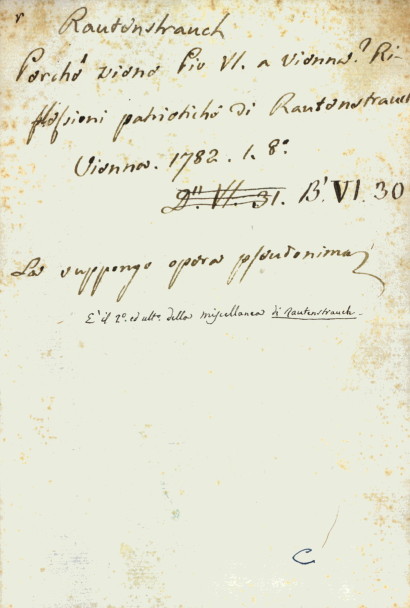 r
Rautenstrauch
Perché viene Pio VI. a Vienna? Ri-
flessioni patriotiche di Rautenstrauch
Vienna. 1782. 1. 8º.
D". VI. 31. B'. VI. 30
La suppongo opera pseudonima
E' il 2º. ed ultº. della miscellanea di Rautenstrauch.
C